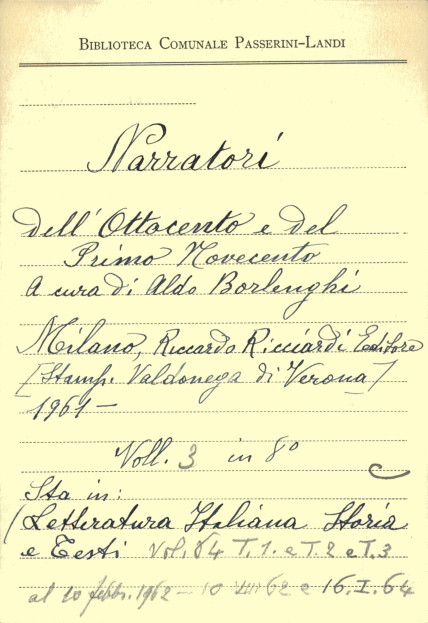 BIBLIOTECA COMUNALE PASSERINI-LANDI
Narratori
dell'Ottocento e del
Primo Novecento
A cura di Aldo Borlenghi
Milano, Riccardo Ricciardi Editore
[Stamp. Valdonega di Verona]
1961-
Voll. 3 in 8º
Sta in:
(Letteratura Italiana Storia
e Testi Vol. 64 T. 1. e T. 2 e T. 3
al 10 febbr. 1962 - 10 VIII 62 e 16.I.64